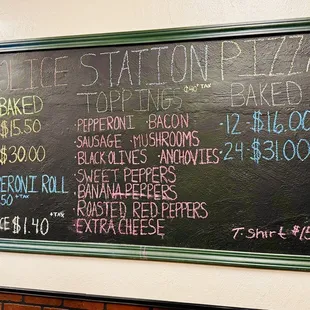 LICE STATION PIZZ
BAKED
$15.50
$30.00
ERONI ROLL
50 +TAX
CE $1.40 +TAX
TOPPINGS
+TAX
· PEPPERONI · BACON
· SAUSAGE · MUSHROOMS
· BLACK OLIVES · ANCHOVIES
· SWEET PEPPERS
· BANANA PEPPERS
· ROASTED RED PEPPERS
· EXTRA CHEESE
BAKED
· 12 $16.00
· 24 $31.00
T-Shirt $15